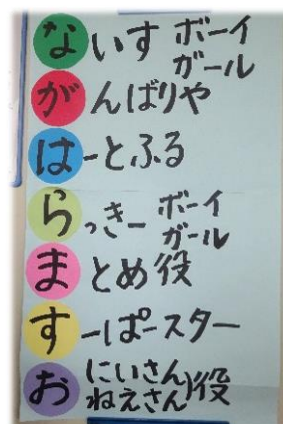 ないす ボーイ
ガール
がんばりや
はーとふる
らっきー ボーイ
ガール
まとめ役
すーぱースター
おにいさん
ねえさん)役